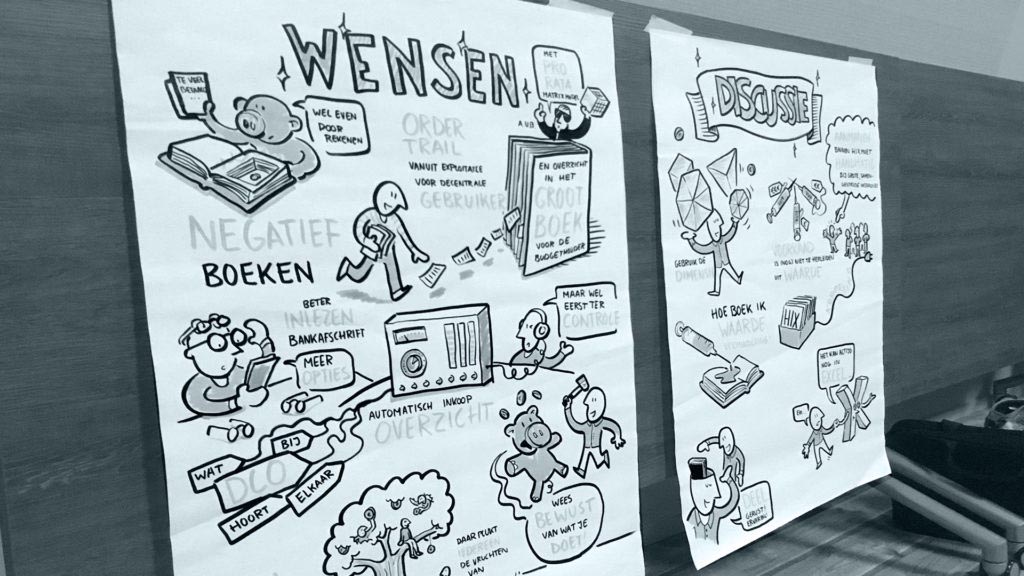 WENSEN
TE VEEL
BETAALD
WEL EVEN
DOOR
REKENEN
MET
PRO
RATA
A.U.B.
ORDER
TRAIL
VANUIT EXPLOITATIE
VOOR DECENTRALE
GEBRUIKER
EN OVERZICHT
IN HET
GROOT
BOEK
VOOR DE
BUDGETHOUDER
NEGATIEF
BOEKEN
BETER
INLEZEN
BANKAFSCHRIFT
MEER
OPTIES
MAAR WEL
EERST TER
CONTROLE
AUTOMATISCH INKOOP
OVERZICHT
WAT
BIJ
DLO
ELKAAR
HOORT
WEES
BEWUST
VAN WAT JE
DOET!
DAAR PLUKT
IEDEREEN
DE VRUCHTEN
VAN
DISCUSSIE
GEBRUIK DE
IS (NOG) NIET TE HERLEIDEN
UIT WAARDE
HOE BOEK IK
WAARDE
HIX
HET KAN ALTIJD
NOG IN
EXCEL
DEEL
GERUST!
ERVARING